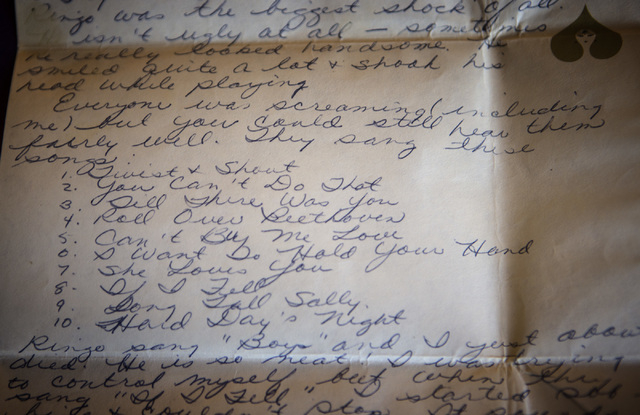 Ringo was the biggest shock of all.
He isn't ugly at all - sometimes
he really looked handsome. He
smiled quite a lot & shook his
head while playing
Everyone was screaming (including
me) but you could still hear them
fairly well. They sang these
songs:
1. Twist & Shout
2. You Can't Do That
3. Till There Was You
4. Roll Over Beethoven
5. Can't Buy Me Love
6. I Want To Hold Your Hand
7. She Loves You
8. If I Fell
9. Long Tall Sally.
10. Hard Day's Night
Ringo sang "Boys" and I just about
died. He is so neat! I was trying
to control myself but when they
sang "If I Fell" I started
& couldn't stop.